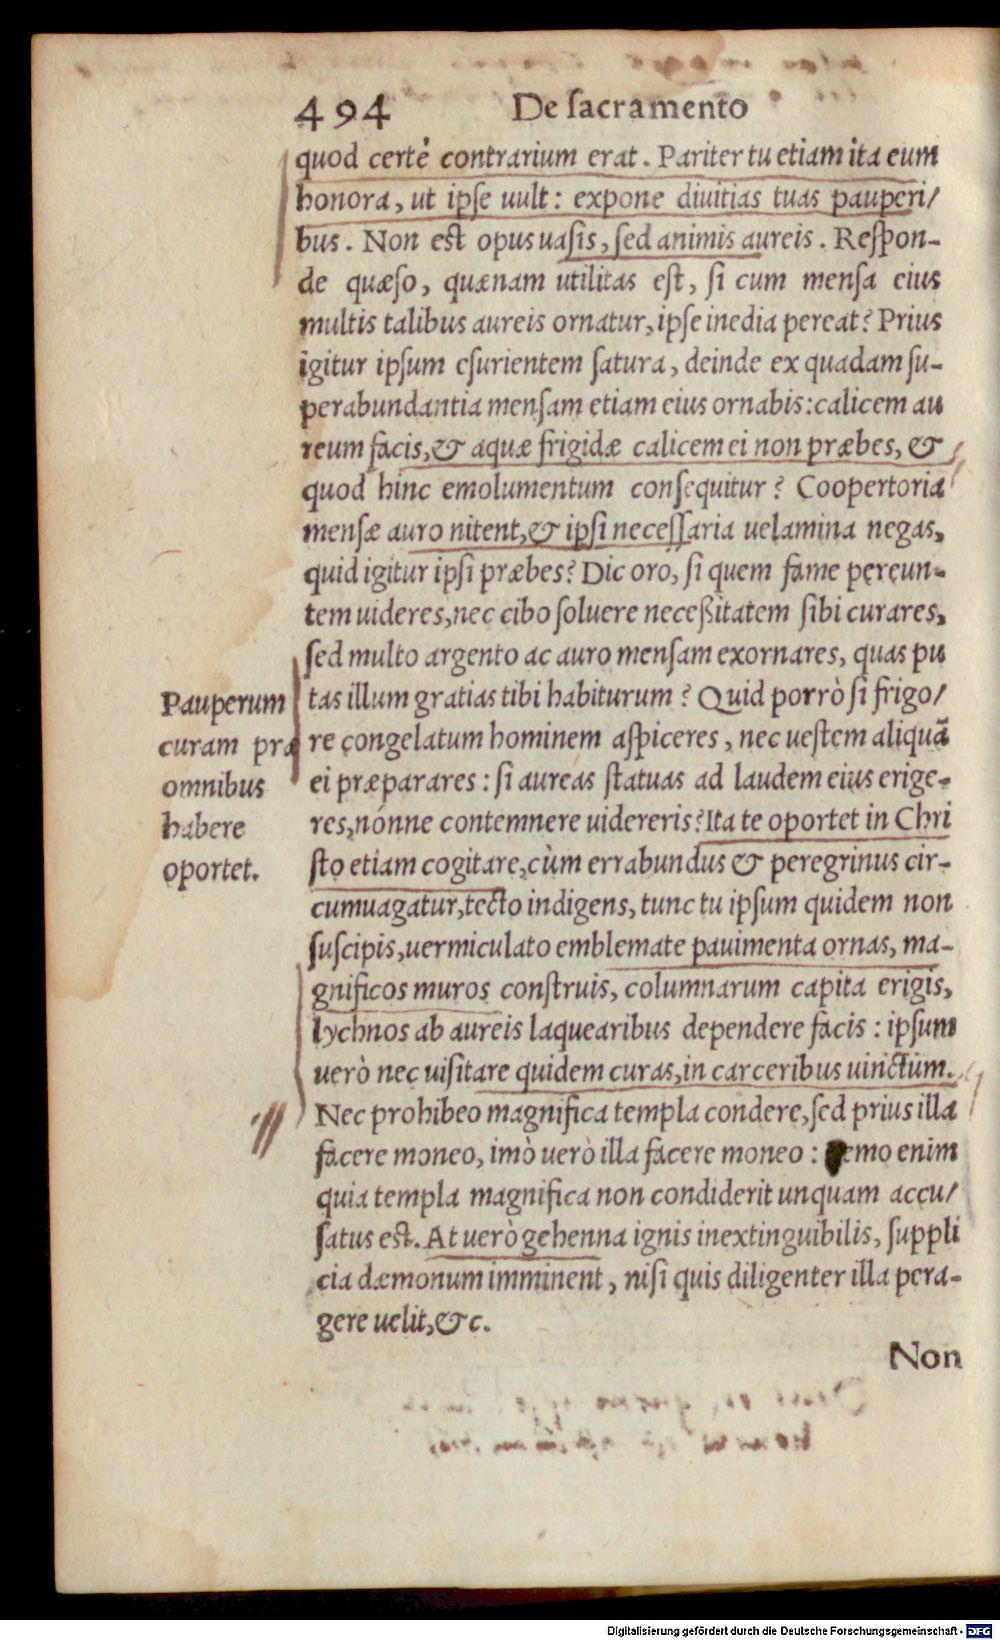 494 De sacramento
quod certè contrarium erat. Pariter tu etiam ita eum
honora, ut ipse uult: expone diuitias tuas pauperi/
bus. Non est opus uasis, sed animis aureis. Respon-
de quæso, quænam utilitas est, si cum mensa eius
multis talibus aureis ornatur, ipse inedia pereat? Prius
igitur ipsum esurientem satura, deinde ex quadam su-
perabundantia mensam etiam eius ornabis: calicem au
reum facis, & aquæ frigidæ calicem ei non præbes, &
quod hinc emolumentum consequitur? Coopertoria
mensæ auro nitent, & ipsi necessaria uelamina negas,
quid igitur ipsi præbes? Dic oro, si quem fame pereun-
tem uideres, nec cibo soluere neceßitatem sibi curares,
sed multo argento ac auro mensam exornares, quas pu
tas illum gratias tibi habiturum? Quid porrò si frigo/
re congelatum hominem aspiceres, nec uestem aliquā
ei præparares: si aureas statuas ad laudem eius erige-
res, nónne contemnere uidereris? Ita te oportet in Chri
sto etiam cogitare, cùm errabundus & peregrinus cir-
cumuagatur, tecto indigens, tunc tu ipsum quidem non
suscipis, uermiculato emblemate pauimenta ornas, ma-
gnificos muros construis, columnarum capita erigis,
lychnos ab aureis laquearibus dependere facis: ipsum
uerò nec uisitare quidem curas, in carceribus uinctum.
Nec prohibeo magnifica templa condere, sed prius illa
facere moneo, imò uerò illa facere moneo: nemo enim
quia templa magnifica non condiderit unquam accu/
satus est. At uerò gehenna ignis inextinguibilis, suppli
cia dæmonum imminent, nisi quis diligenter illa pera-
gere uelit, &c.
Non
Pauperum
curam præ
omnibus
habere
oportet.
Digitalisierung gefördert durch die Deutsche Forschungsgemeinschaft - DFG